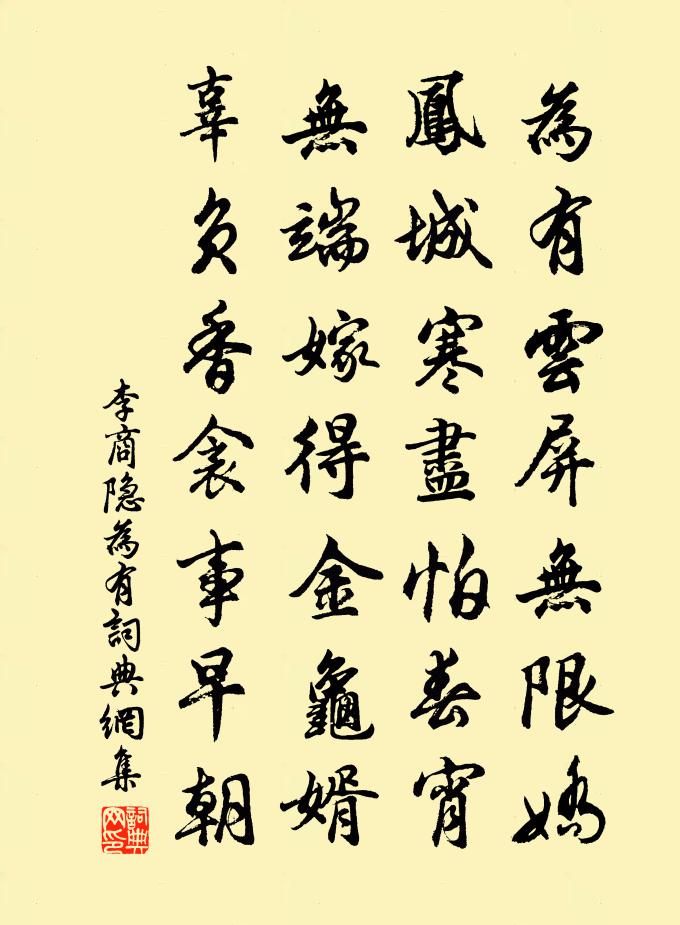 為有雲屏無限嬌
鳳城寒盡怕春宵
無端嫁得金龜婿
辜負香衾事早朝
李商隐為有詞典網集
詞典網印